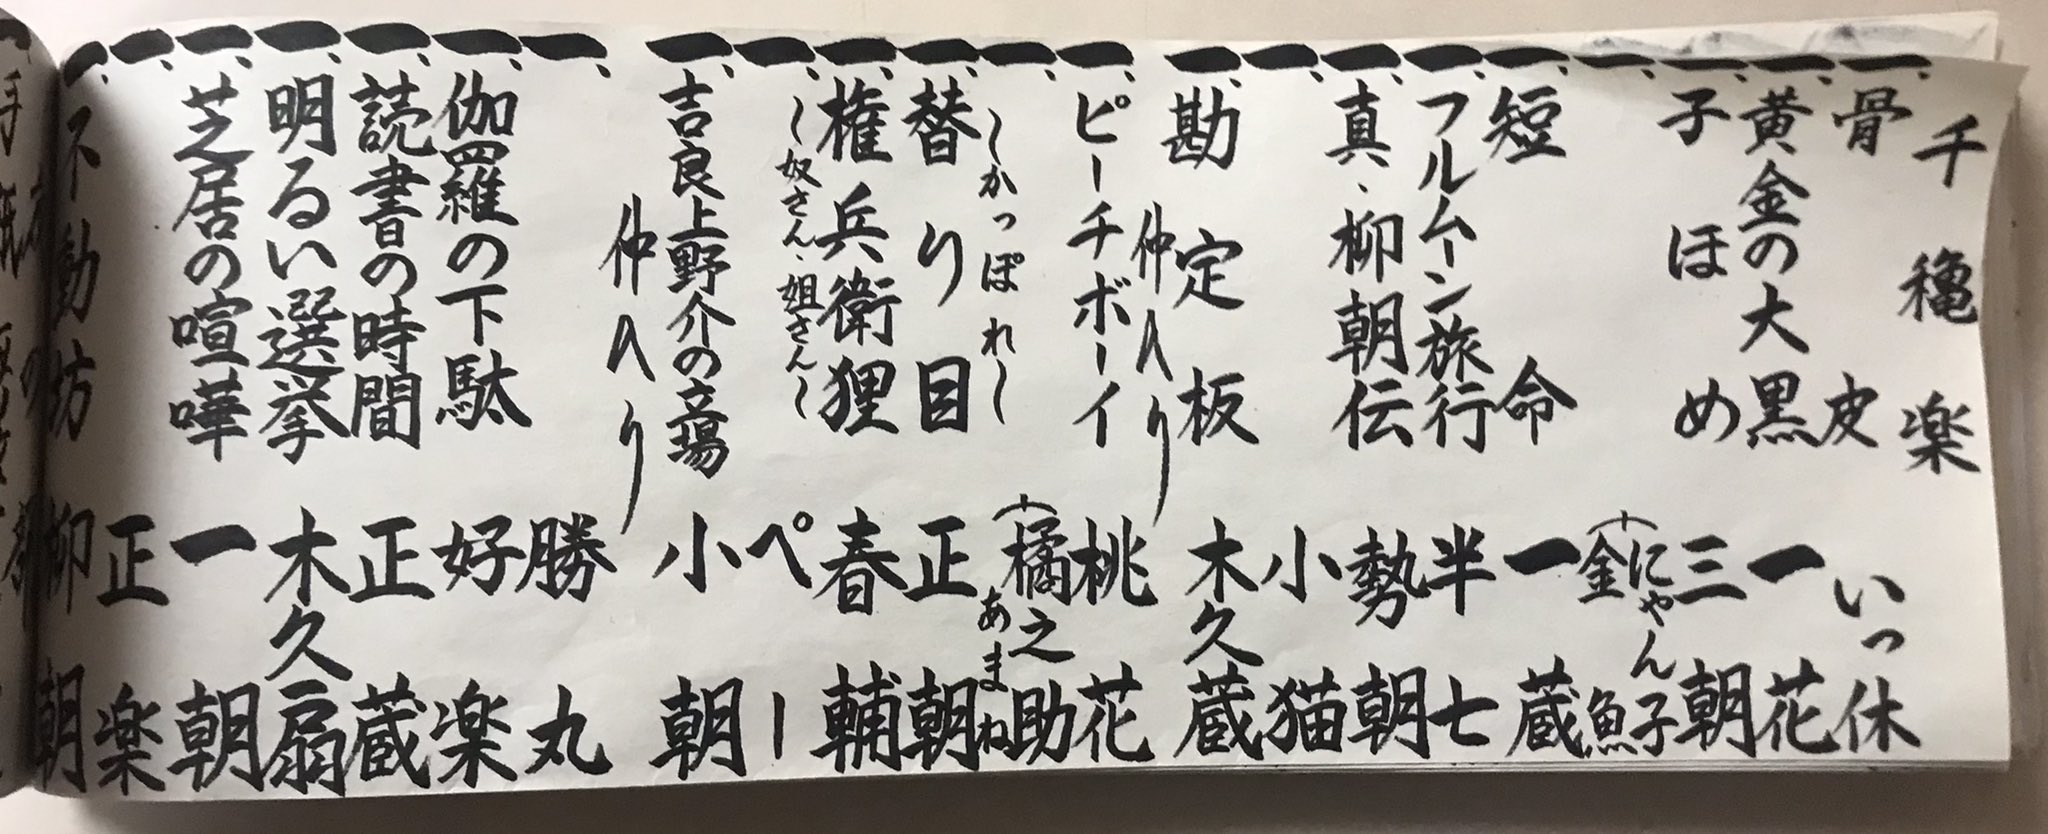 千穐楽
一、骨皮 いっ休
一、黄金の大黒 一花
一、子ほめ 三朝
一、(にゃん子 金魚
一、短命 一蔵
一、フルムーン旅行 半七
一、真、柳朝伝 勢朝
一、 小猫
一、勘定板 木久蔵
仲入り
一、ピーチボーイ 桃花
一、〜かっぽれ〜 (橘之助 あまね
一、替り目 正朝
一、権兵衛狸 春輔
一、〜奴さん、姐さん〜 ペー
一、吉良上野介の立場 小朝
仲入り
一、 勝丸
一、伽羅の下駄 好楽
一、読書の時間 正蔵
一、明るい選挙 木久扇
一、芝居の喧嘩 一朝
一、 正楽
一、不動坊 柳朝